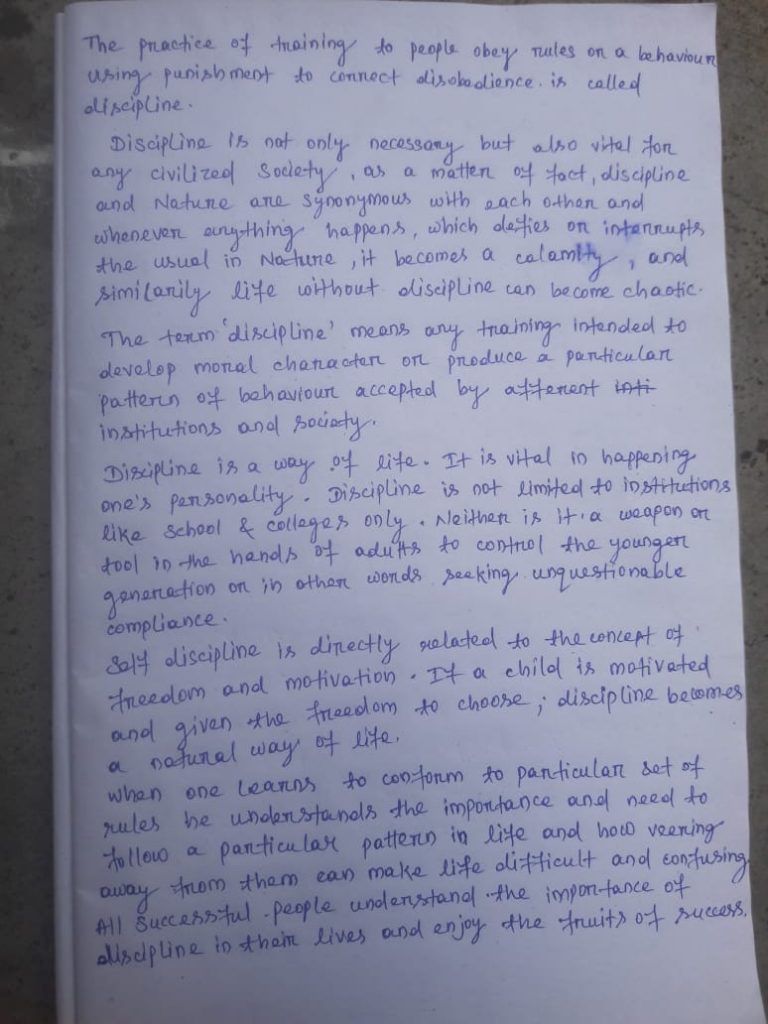 The practice of training to people obey rules or a behaviour
using punishment to correct disobedience. is called
discipline.
Discipline is not only necessary but also vital for
any civilized Society, as a matter of fact, discipline
and Nature are synonymous with each other and
whenever anything happens, which defies or interrupts
the usual in Nature, it becomes a calamity, and
similarily life without discipline can become chaotic.
The term 'discipline' means any training intended to
develop moral character or produce a particular
pattern of behaviour accepted by afferent inti
institutions and society.
Discipline is a way of life. It is vital in happening
one's personality. Discipline is not limited to institutions
like School & colleges only. Neither is it a weapon or
tool in the hands of adults to control the younger
generation or in other words seeking unquestionable
compliance.
Self discipline is directly related to the concept of
freedom and motivation. If a child is motivated
and given the freedom to choose; discipline becomes
a natural way of life.
when one learns to conform to particular set of
rules he understands the importance and need to
follow a particular pattern in life and how veering
away from them can make life difficult and confusing
All Successful people understand the importance of
discipline in their lives and enjoy the fruits of success.